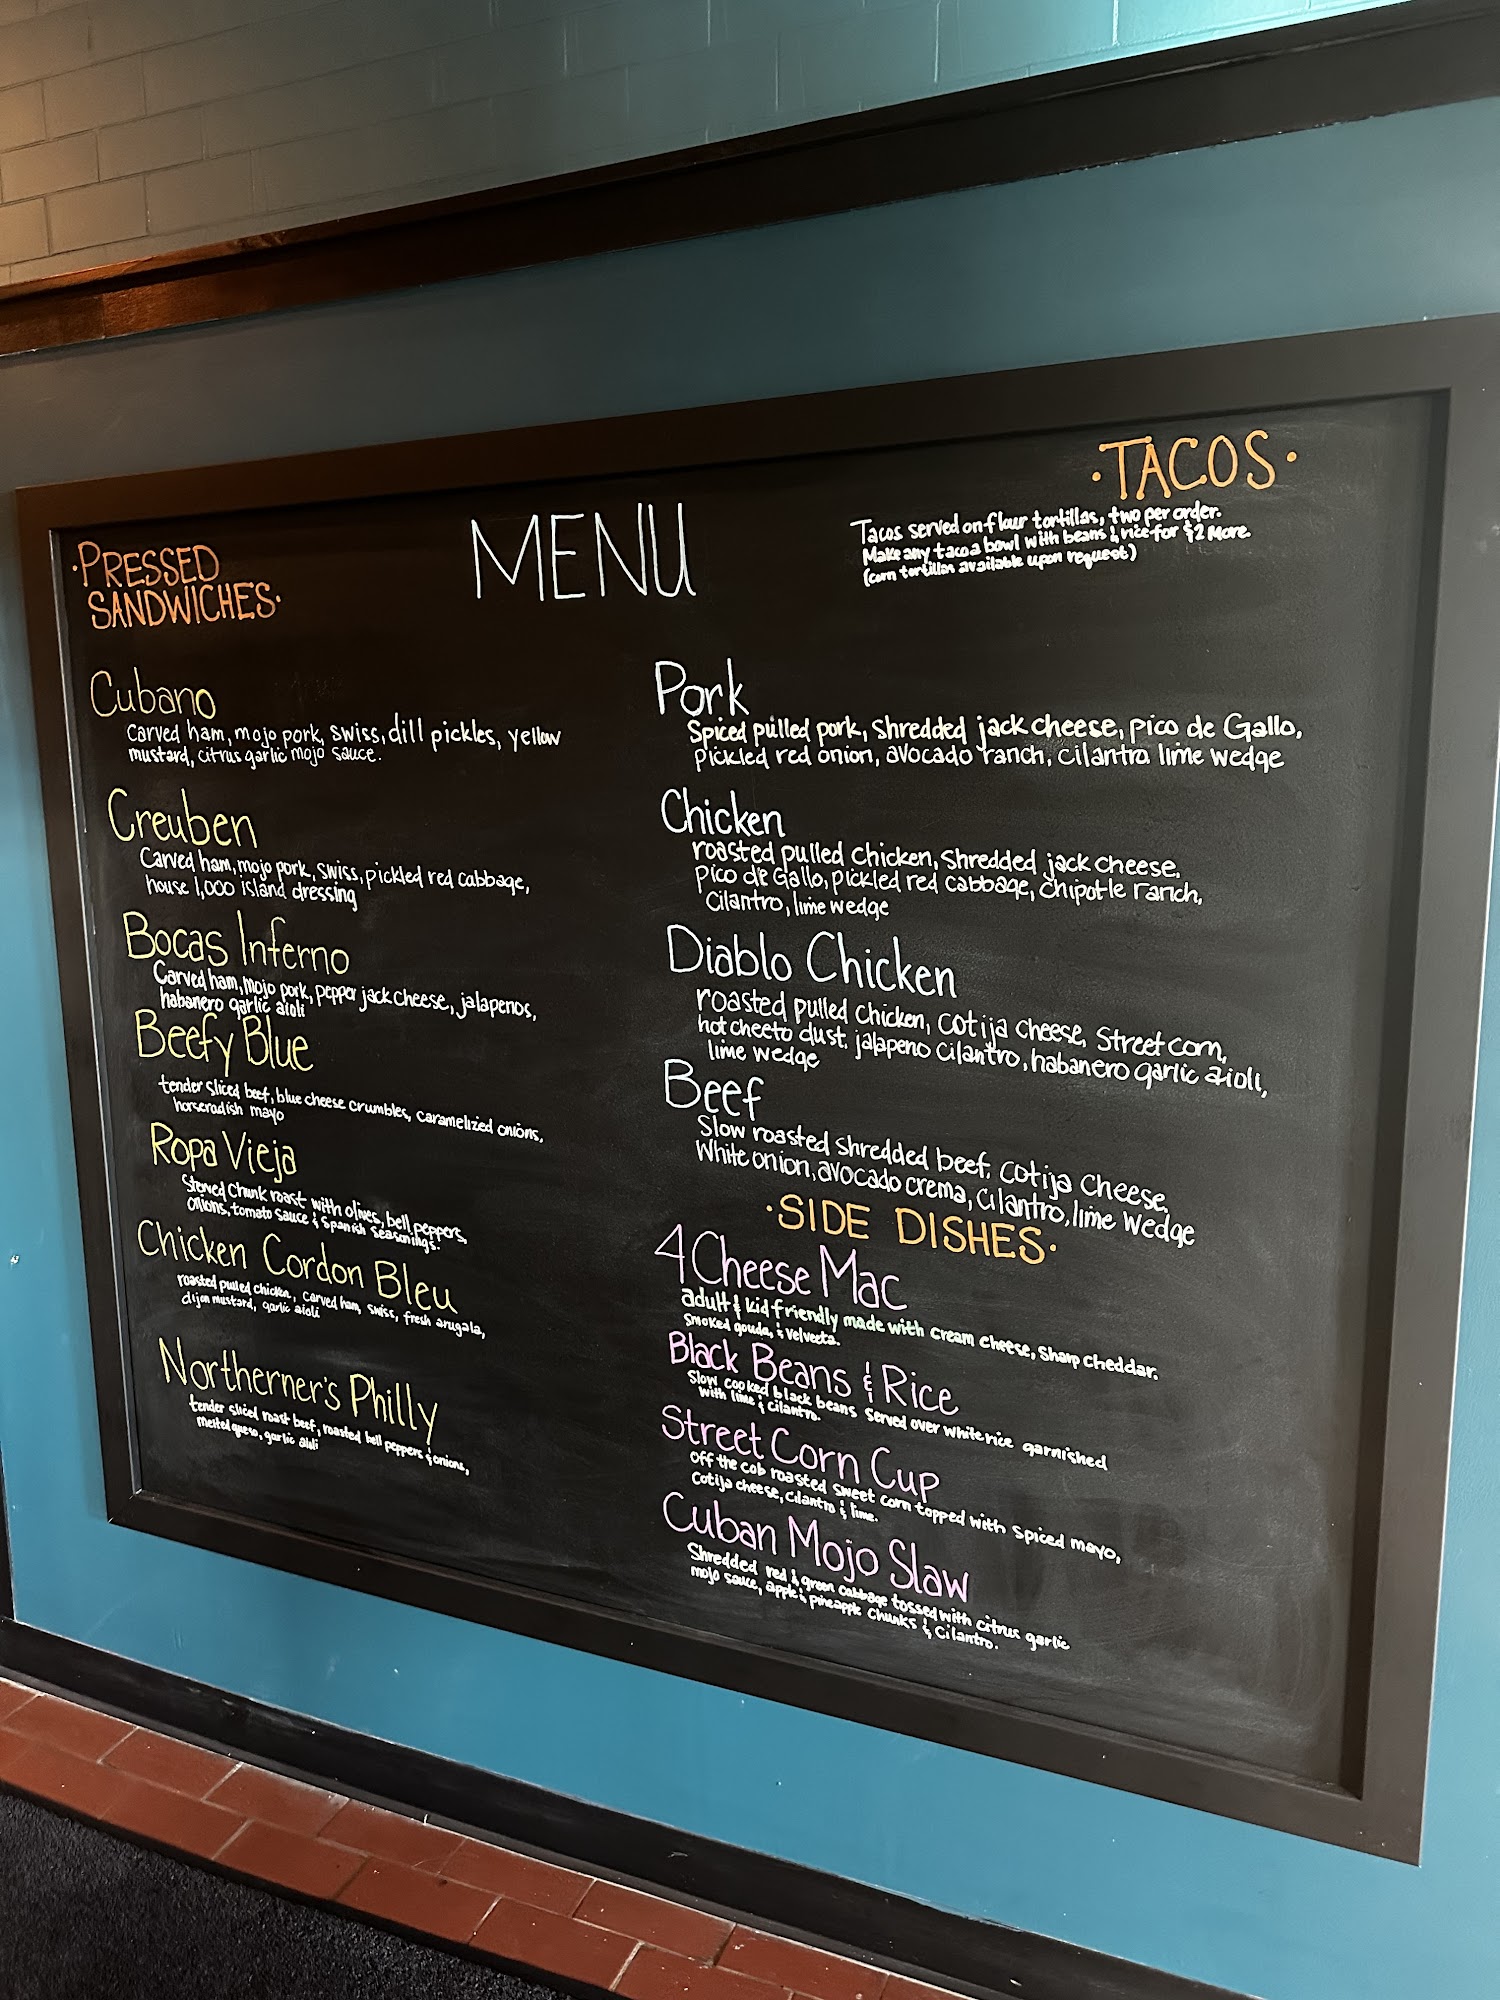 MENU
·PRESSED
SANDWICHES·
Cubano
Carved ham, mojo pork, swiss, dill pickles, yellow
mustard, citrus garlic mojo sauce.
Creuben
Carved ham, mojo pork, swiss, pickled red cabbage,
house 1,000 island dressing
Bocas Inferno
Carved ham, mojo pork, pepper jack cheese, jalapenos,
habanero garlic aioli
Beefy Blue
tender sliced beef, blue cheese crumbles, caramelized onions,
horseradish mayo
Ropa Vieja
Stewed Chunk roast with olives, bell peppers,
onions, tomato sauce & Spanish seasonings.
Chicken Cordon Bleu
roasted pulled chicken, carved ham, swiss, fresh arugala,
dijon mustard, garlic aioli
Northerner's Philly
tender sliced roast beef, roasted bell peppers & onions,
melted queso, garlic aioli
·TACOS·
Tacos served on flour tortillas, two per order.
Make any taco a bowl with beans & rice for $2 More.
(corn tortillas available upon request)
Pork
Spiced pulled pork, shredded jack cheese, pico de Gallo,
pickled red onion, avocado ranch, cilantro lime wedge
Chicken
roasted pulled chicken, shredded jack cheese.
Pico de Gallo, pickled red cabbage, chipotle ranch,
cilantro, lime wedge
Diablo Chicken
roasted pulled chicken, cotija cheese, street corn,
hot cheeto dust, jalapeno cilantro, habanero garlic aioli,
lime wedge
Beef
Slow roasted shredded beef, cotija cheese,
White onion, avocado crema, cilantro, lime wedge
·SIDE DISHES·
4 Cheese Mac
adult & kid friendly made with cream cheese, sharp cheddar.
smoked gouda, & velveeta.
Black Beans & Rice
Slow cooked black beans served over white rice garnished
with lime & cilantro.
Street Corn Cup
Off the cob roasted sweet corn topped with spiced mayo,
Cotija cheese, cilantro & lime.
Cuban Mojo Slaw
Shredded red & green cabbage tossed with citrus garlic
mojo sauce, apple & pineapple chunks & cilantro.